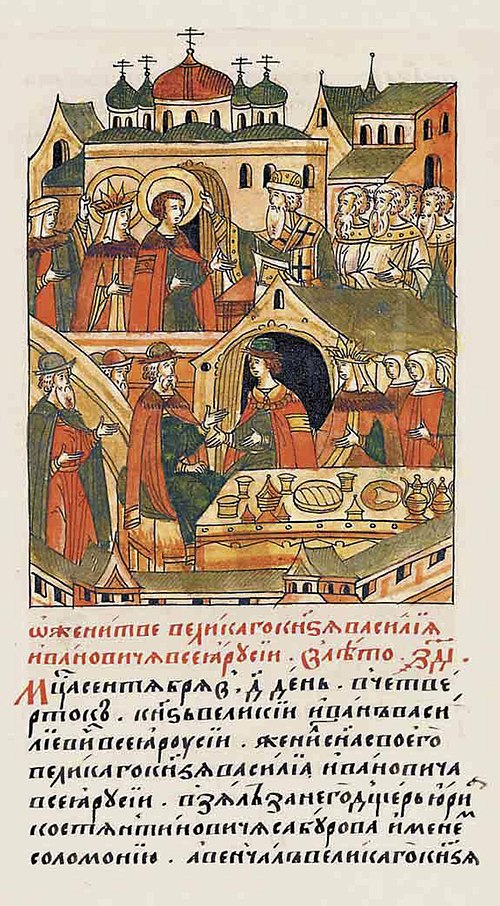 ѡженитве великаго кнѕя василїя
ивановича всеѧ русїи . в лѣто . ҂зд҃і .
Мц҃а сентября в҃ . д҃ день . в четве
рток . кнѕь великїи иван васи
лїевич всеѧ роусїи . жени сна своего
великаго кнѕя василїя ивановича
всеѧ русїи . взял за него дщерь юрїѧ
костянтиновича сабурова именем
соломонїю . а венчал великаго кнѕя